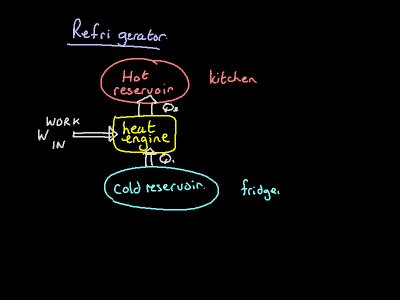 Refrigerator.
Hot
reservoir
kitchen
Q₂
WORK
W
IN
heat
engine
Q₁
cold reservoir.
fridge.